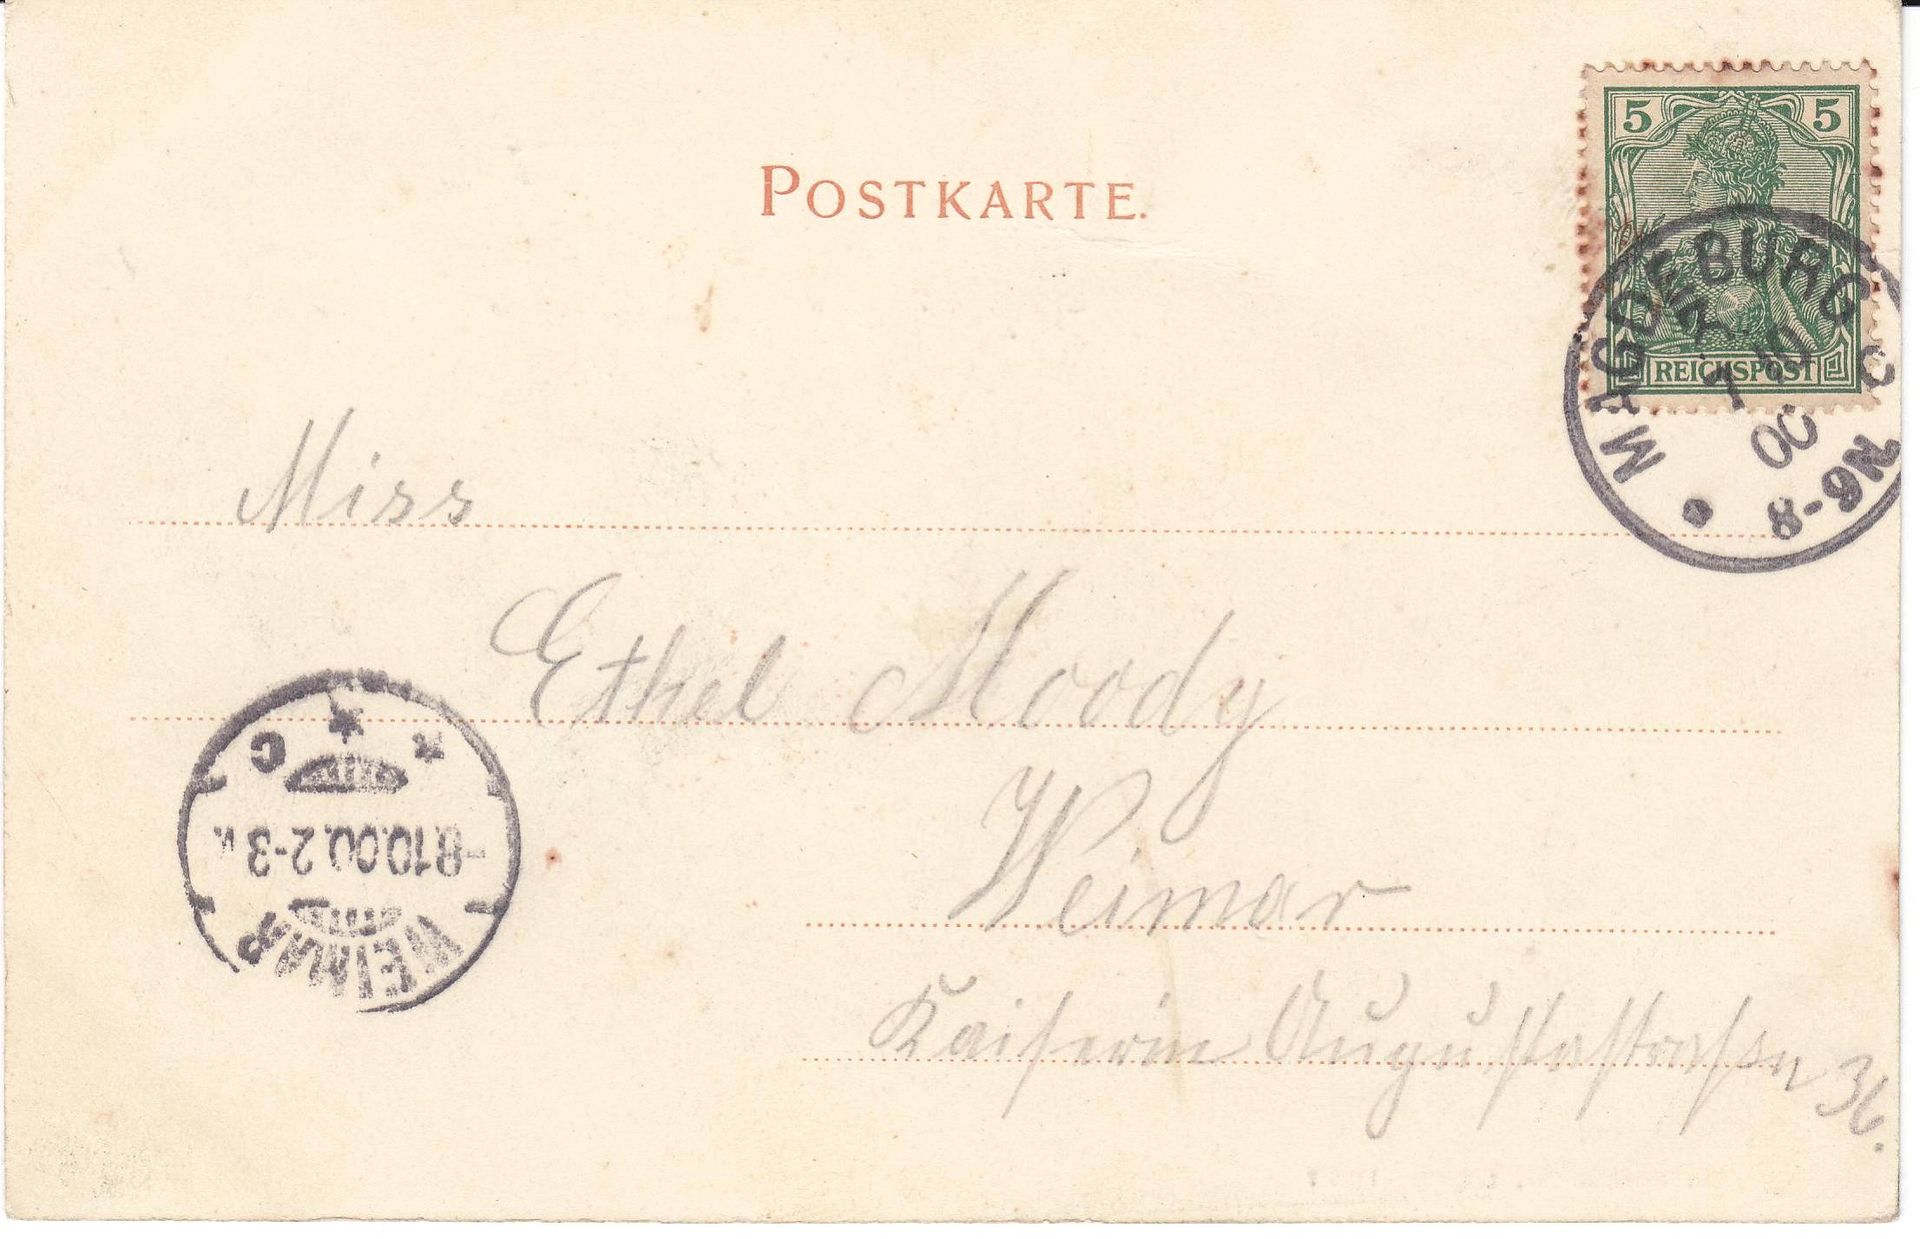 POSTKARTE.
5 5
REICHSPOST
MAGDEBURG
7 10 00
8-9N
Miss
Ethel Moody
Weimar
Kaiserin Augustastraße 36.
WEIMAR
-8.10.00. 2-3 N.
C